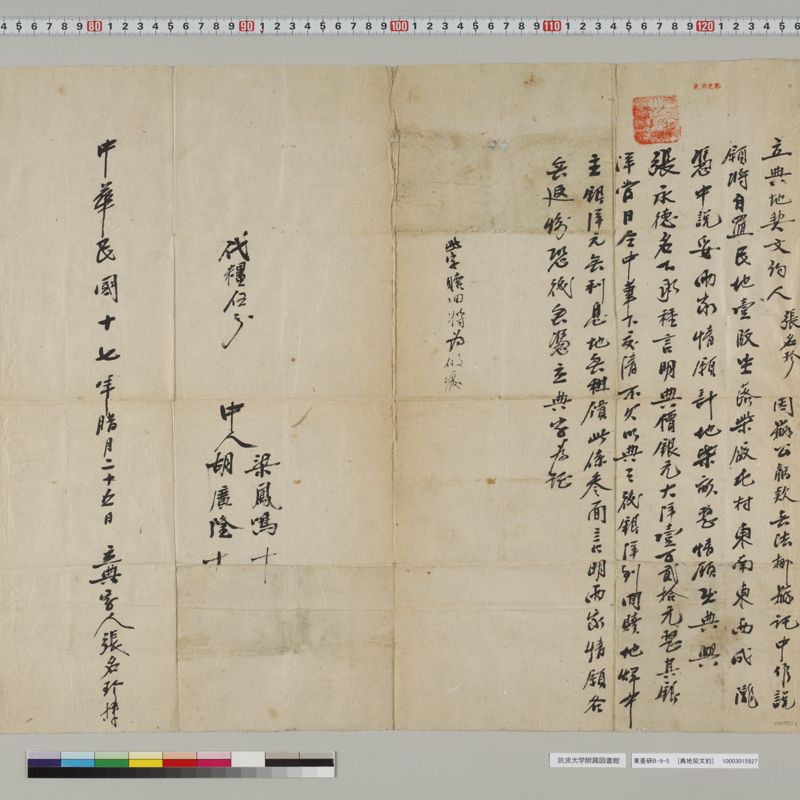 立典地契文約人張名珍 因辦公虧款無法挪辦託中作說
願將自置民地壹段坐落柴廠屯村東南東西成隴
憑中說妥兩家情願計地柴畝整情願出典與
張永德名下承種言明典價銀元大洋壹百貳拾元整其銀
洋當日仝中筆下交清不欠此典三後銀洋到回贖地歸本
主銀洋元無利息地無租債此係叁面言明兩家情願各
無返悔恐後無憑立典字為證
此字贖回將為廢
代糧伍分
中人 梁鳳鳴 十
胡廣隆 十
中華民國十七年腊月二十五日 立典字人張名珍
筑波大学附属図書館
東亜研B-9-5 [典地契文約] 10003015927